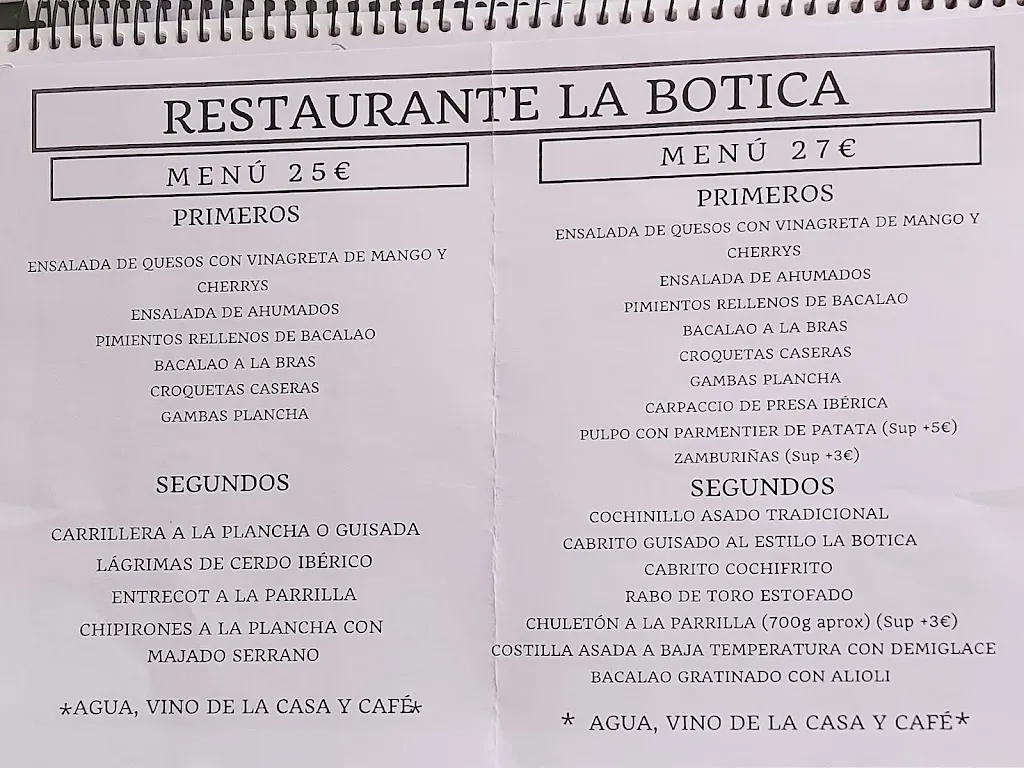 RESTAURANTE LA BOTICA
MENÚ 25€
PRIMEROS
ENSALADA DE QUESOS CON VINAGRETA DE MANGO Y
CHERRYS
ENSALADA DE AHUMADOS
PIMIENTOS RELLENOS DE BACALAO
BACALAO A LA BRAS
CROQUETAS CASERAS
GAMBAS PLANCHA
SEGUNDOS
CARRILLERA A LA PLANCHA O GUISADA
LÁGRIMAS DE CERDO IBÉRICO
ENTRECOT A LA PARRILLA
CHIPIRONES A LA PLANCHA CON
MAJADO SERRANO
*AGUA, VINO DE LA CASA Y CAFÉ*
MENÚ 27€
PRIMEROS
ENSALADA DE QUESOS CON VINAGRETA DE MANGO Y
CHERRYS
ENSALADA DE AHUMADOS
PIMIENTOS RELLENOS DE BACALAO
BACALAO A LA BRAS
CROQUETAS CASERAS
GAMBAS PLANCHA
CARPACCIO DE PRESA IBÉRICA
PULPO CON PARMENTIER DE PATATA (Sup +5€)
ZAMBURIÑAS (Sup +3€)
SEGUNDOS
COCHINILLO ASADO TRADICIONAL
CABRITO GUISADO AL ESTILO LA BOTICA
CABRITO COCHIFRITO
RABO DE TORO ESTOFADO
CHULETÓN A LA PARRILLA (700g aprox) (Sup +3€)
COSTILLA ASADA A BAJA TEMPERATURA CON DEMIGLACE
BACALAO GRATINADO CON ALIOLI
* AGUA, VINO DE LA CASA Y CAFÉ*